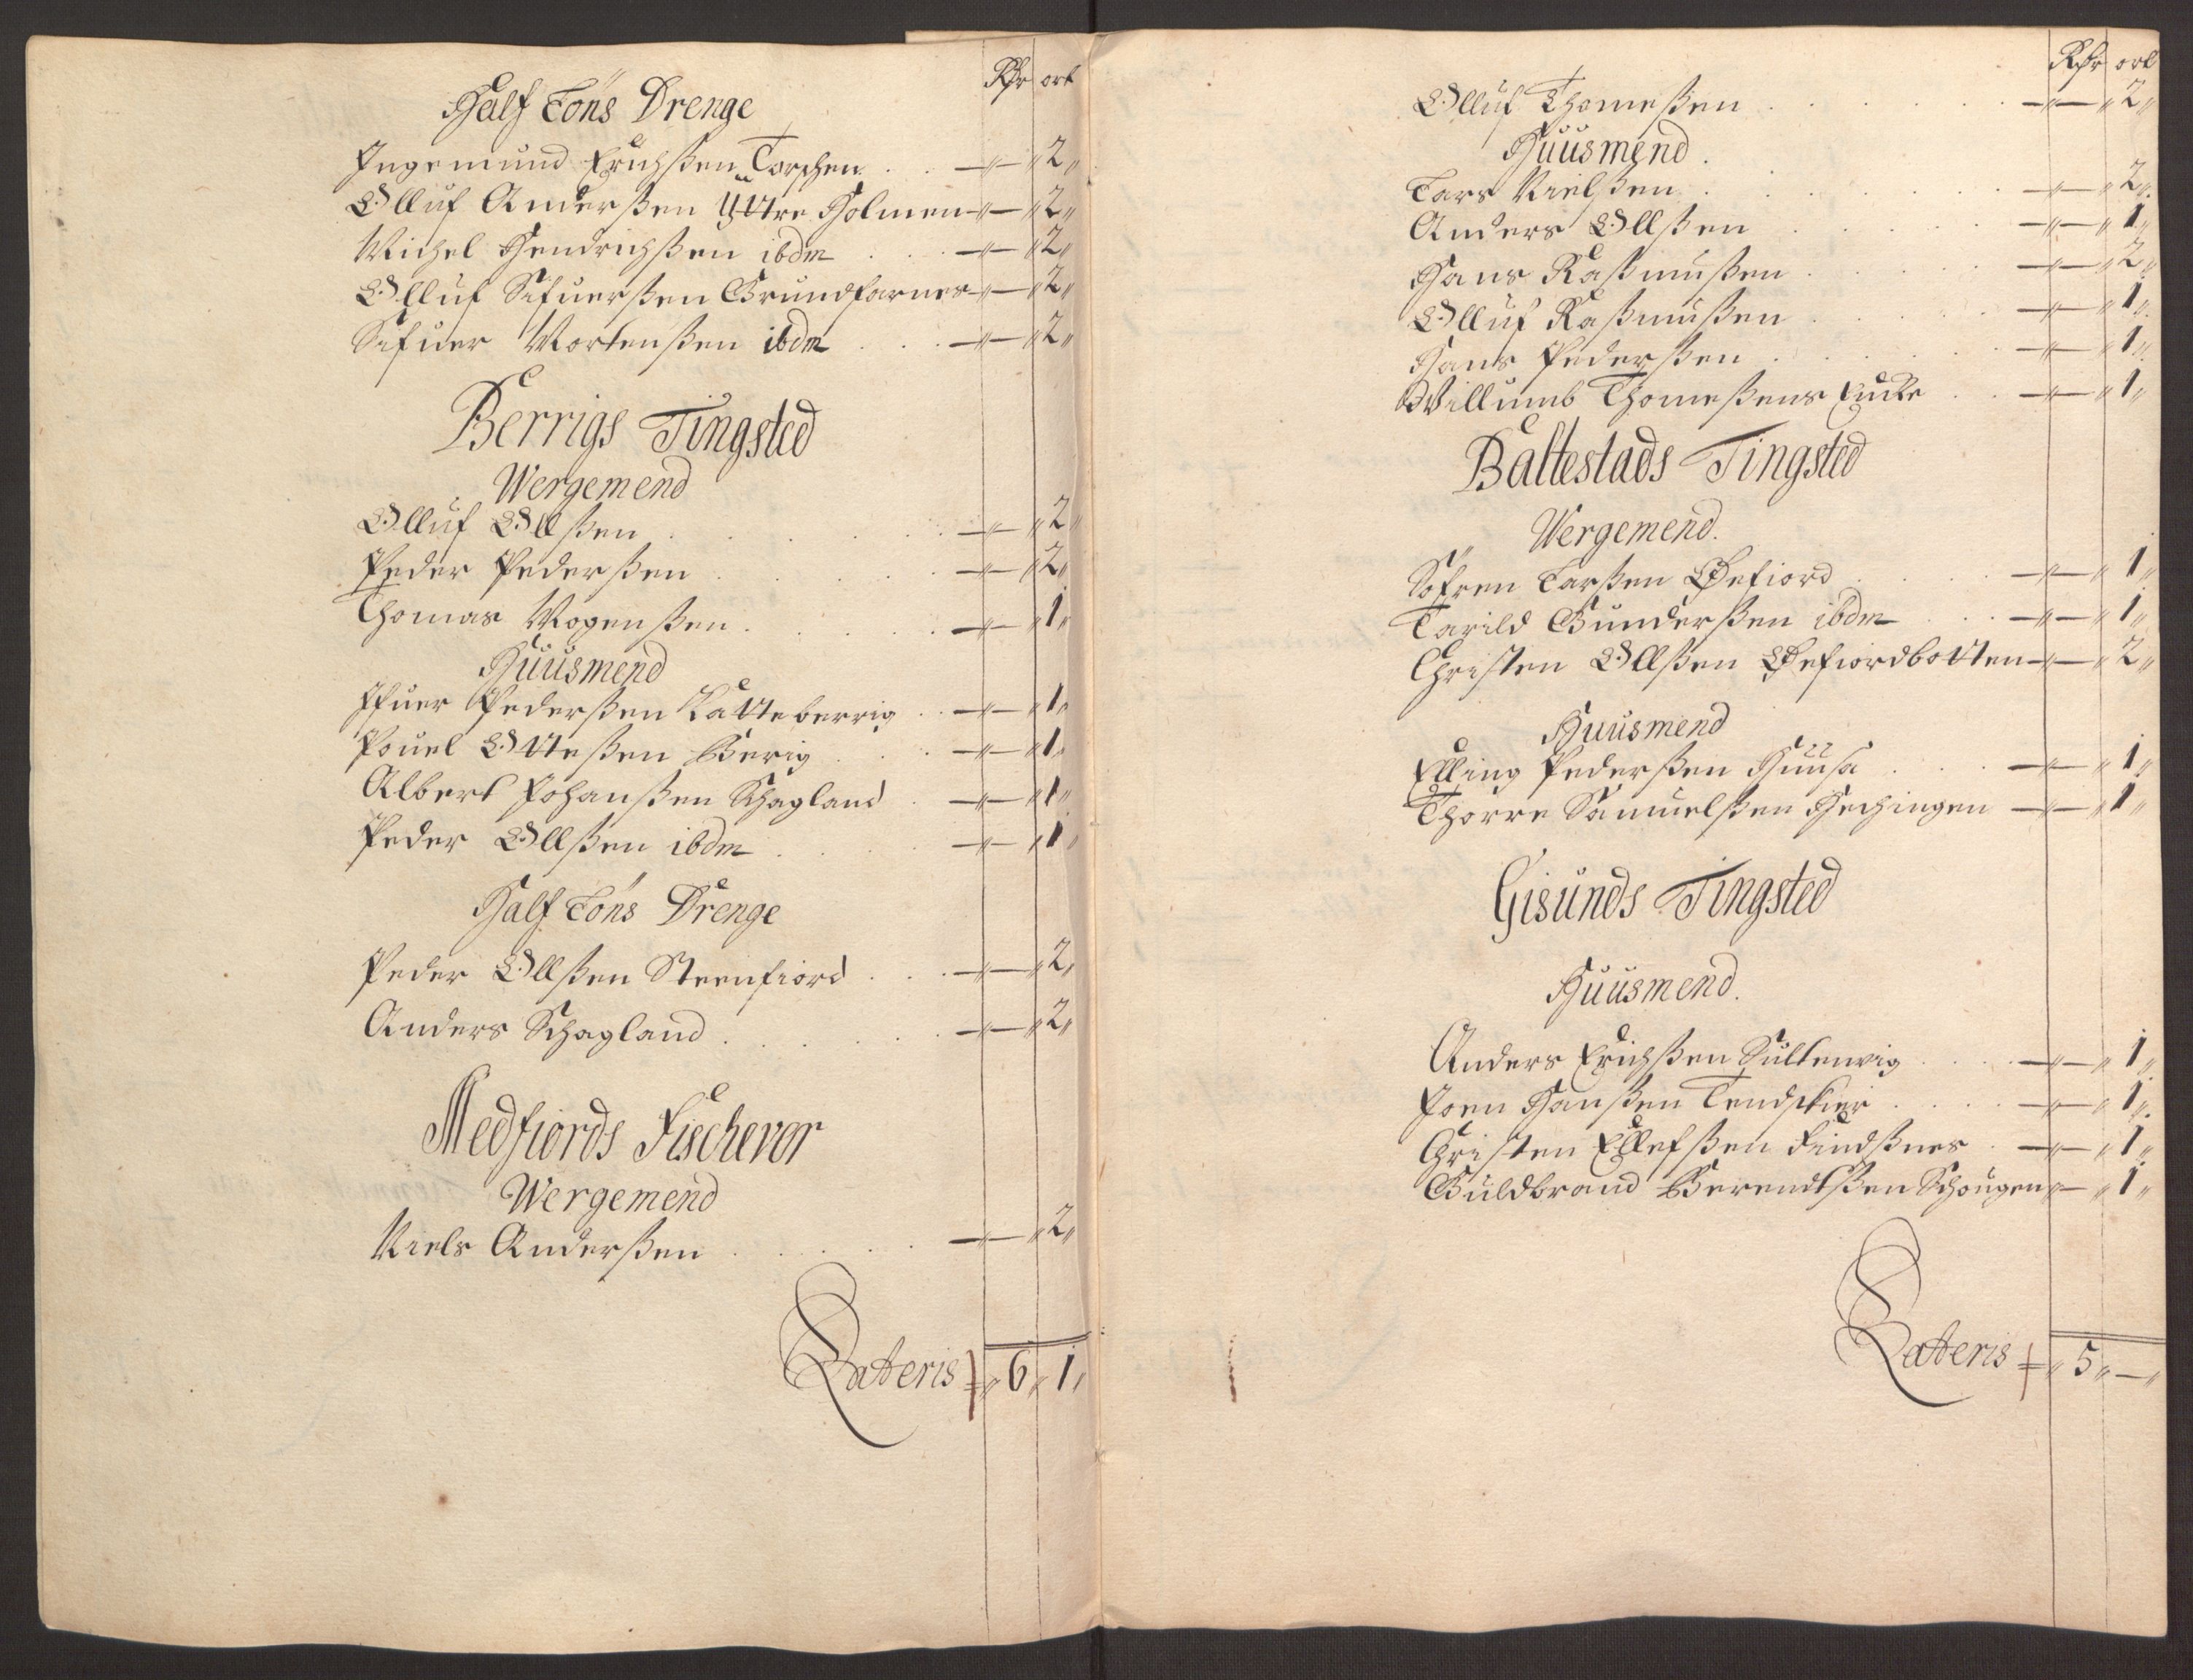 Rdr ort
Half Löns Drenge
Ingemund Erichßen Torschen . . — „ — „ 2 „
Olluf Anderßen Yttre Holmen — „ — „ 2 „
Michel Hendrichßen ibdm . . — „ — „ 2 „
Olluf Sifuerßen Grundfarnes — „ — „ 2 „
Sifuer Mortenßen ibdm . . — „ — „ 2 „
Berrigs Tingsted
Wergemend
Olluf Ollßen . . . . — „ — „ 2 „
Peder Pederßen . . . . — „ — „ 2 „
Thomas Mogenßen . . . . — „ — „ 1 „
Huusmend
Ifuer Pederßen Katteberrig . . — „ — „ 1 „
Pouel Otteßen Berig . . — „ — „ 1 „
Albert Johanßen Schagland . — „ — „ 1 „
Peder Ollßen ibdm . . . — „ — „ 1 „
Half Löns Drenge
Peder Ollßen Steenfiord . . . — „ — „ 2 „
Anders Schagland . . . . — „ — „ 2 „
Medfiords Fischevær
Wergemend
Niels Anderßen . . . . — „ — „ 2 „
Lateris „ 6 „ 1 „
Rdr ort
Olluf Thomeßen . . . . — „ — „ 2 „
Huusmend.
Lars Nielßen . . . . — „ — „ 2 „
Anders Ollßen . . . . — „ — „ 1 „
Hans Raßmußen . . . . — „ — „ 2 „
Olluf Raßmußen . . . . — „ — „ 1 „
Hans Pederßen . . . . — „ — „ 1 „
Willumb Thomeßens Encke . . — „ — „ 1 „
Baltestads Tingsted
Wergemend.
Söfren Larßen Øefiord . . . — „ — „ 1 „
Tarild Gunderßen ibdm . . . — „ — „ 1 „
Christen Ollßen Øefiordbotten — „ — „ 2 „
Huusmend
Elling Pederßen Huusa . . . — „ — „ 1 „
Thorre Samuelßen Hechingen — „ — „ 1 „
Gisunds Tingsted
Huusmend.
Anders Erichßen Sultenvig . . . — „ — „ 1 „
Joen Hanßen Tendskier . . . — „ — „ 1 „
Christen Ellefßen Findßnes . — „ — „ 1 „
Guldbrand Berendtßen Schougen „ — „ 1 „
Lateris „ 5 „ — „